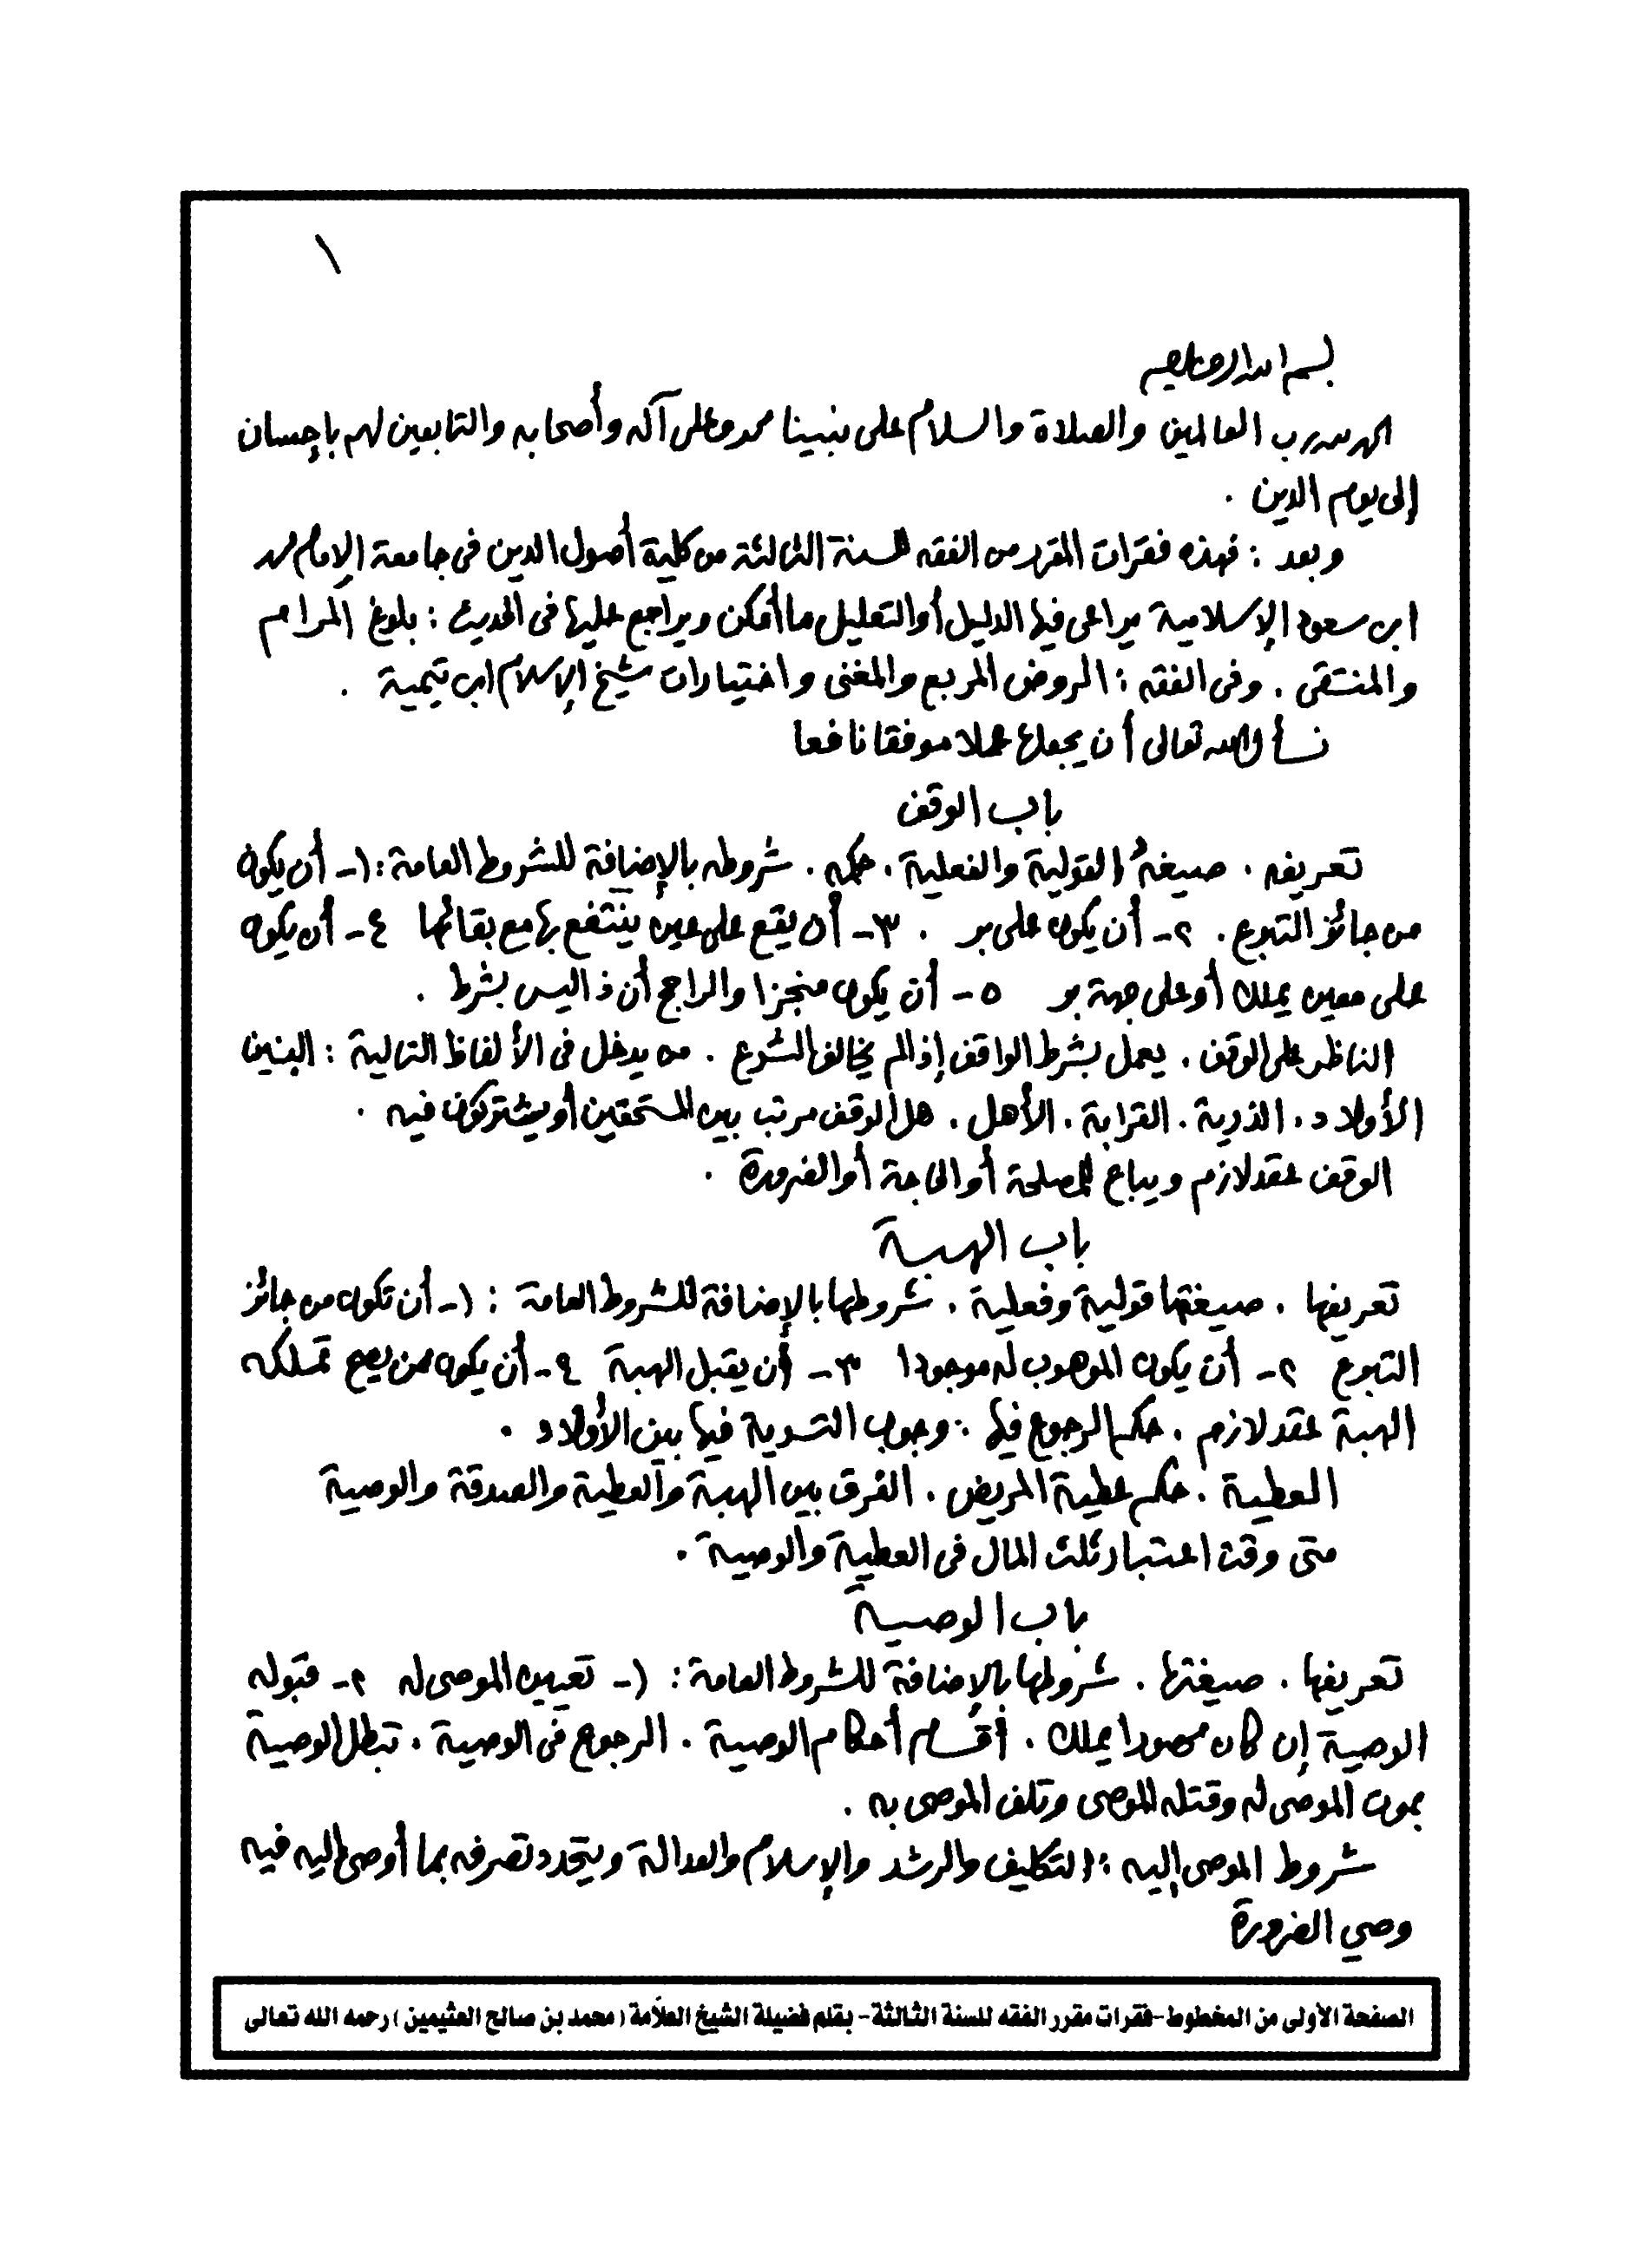 ١
بسم الله الرحمن الرحيم
الحمد لله رب العالمين والصلاة والسلام على نبينا محمد وعلى آله وأصحابه والتابعين لهم بإحسان
إلى يوم الدين .
وبعد : فهذه فقرات المقرر من الفقه للسنة الثالثة من كلية أصول الدين في جامعة الإمام محمد
ابن سعود الإسلامية يراعى فيها الدليل أو التعليل ما أمكن ويراجع عليها في الحديث : بلوغ المرام
والمنتقى . وفي الفقه : الروض المربع والمغنى واختيارات شيخ الإسلام ابن تيمية .
نسأل الله تعالى أن يجعلها عملا موفقا نافعا
باب الوقف
تعريفه . صيغهُ القولية والفعلية . حكمه . شروطه بالإضافة للشروط العامة : ١- أن يكون
من جائز التبرع . ٢- أن يكون على بر . ٣- أن يقع على عين ينتفع بها مع بقائها ٤- أن يكون
على معين يملك أو على جهة بر ٥- أن يكون منجزا والراجح أن ذا ليس بشرط .
الناظر على الوقف . يعمل بشرط الواقف إذا لم يخالف الشرع . من يدخل في الألفاظ التالية : البنين
الأولاد . الذرية . القرابة . الأهل . هل الوقف مرتب بين المستحقين أو يشتركون فيه .
الوقف عقد لازم ويباع للمصلحة أو الحاجة أو الضرورة .
باب الهبة
تعريفها . صيغتها قولية وفعلية . شروطها بالإضافة للشروط العامة : ١- أن تكون من جائز
التبرع ٢- أن يكون الموهوب له موجودا ٣- أن يقبل الهبة ٤- أن يكون ممن يصح تملكه
الهبة عقد لازم . حكم الرجوع فيها : وجوب التسوية فيها بين الأولاد .
العطية . حكم عطية المريض . الفرق بين الهبة والعطية والصدقة والوصية
متى وقت اعتبار ثلث المال في العطية والوصية .
باب الوصية
تعريفها . صيغتها . شروطها بالإضافة للشروط العامة : ١- تعيين الموصى له ٢- قبوله
الوصية إن كان محصورا يملك . أقسام أحكام الوصية . الرجوع في الوصية . تبطل الوصية
بموت الموصى له وقتله للموصى وتلف الموصى به .
شروط الموصى إليه : التكليف والرشد والإسلام والعدالة ويتحدد تصرفه بما أوصي إليه فيه
وصي الضرورة
الصفحة الأولى من المخطوط -فقرات مقرر الفقه للسنة الثالثة- بقلم فضيلة الشيخ العلاّمة (محمد بن صالح العثيمين) رحمه الله تعالى